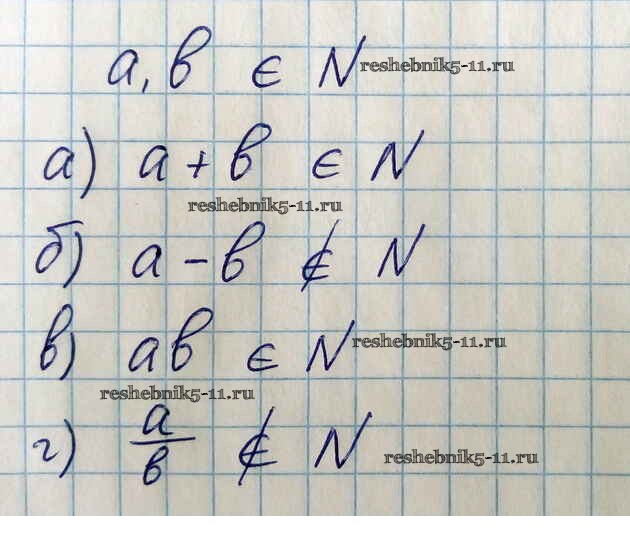 a, b ∈ N reshebnik5-11.ru
а) a + b ∈ N
reshebnik5-11.ru
б) a - b ∉ N
в) ab ∈ N reshebnik5-11.ru
reshebnik5-11.ru
г) a/b ∉ N reshebnik5-11.ru